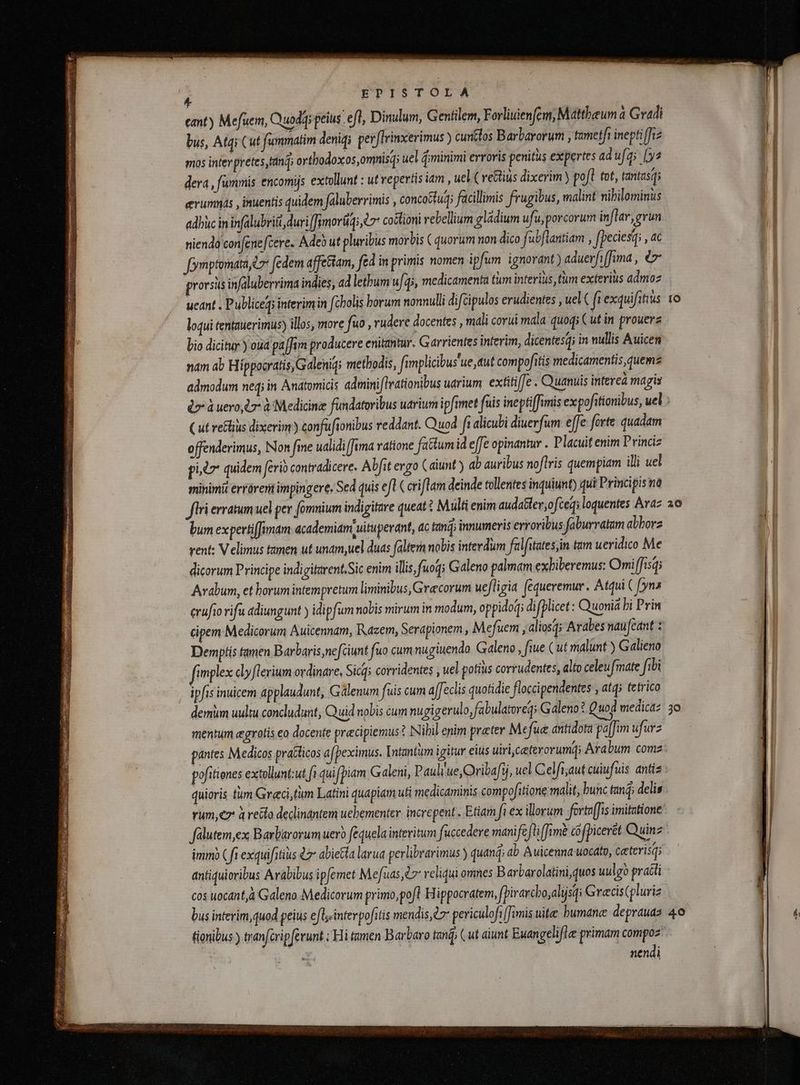 4 EPISTOLA
cant) Mesuem, Quodq; peius est, Dinulum, Gentilem, Forliuiensem, Matthæum à Gradi
bus, Atq; (ut summatim deniq; perstrinxerimus) cunctos Barbarorum, tametsi ineptissi=
mos interpretes, tanq; orthodoxos, omnisq; uel q; minimi erroris penitus expertes ad usq; sy=
dera, summis encomijs extollunt: ut repertis iam, uel (rectius dixerim) post tot, tantasq;
ærumnas, inuentis quidem saluberrimis, concoctuq; facillimis frugibus, malint nihilominus
adhuc in insalubriū, durissimorūq;, & coctioni rebellium gládium usu, porcorum instar, grun
niendo consenescere. Adeò ut pluribus morbis (quorum non dico substantiam, speciesq;, ac
symptomata, & sedem affectam, sed in primis nomen ipsum ignorant) aduersissima, &
prorsus insaluberrima indies, ad lethum usq;, medicamenta tum interius, tum exterius admo=
ueant. Publiceq; interim in scholis horum nonnulli discipulos erudientes, uel (si exquisitius 10
loqui tentauerimus) illos, more suo, rudere docentes, mali corui mala quoq; (ut in prouer=
bio dicitur) oua passim producere enitantur. Garrientes interim, dicentesq; in nullis Auicen
nam ab Hippocratis, Galeniq; methodis, simplicibus'ue, aut compositis medicamentis, quem=
admodum neq; in Anatomicis administrationibus uarium extitisse. Quanuis intereà magis
& à uero, & à Medicinæ fundatoribus uarium ipsimet suis ineptissimis expositionibus, uel
(ut rectius dixerim) confusionibus reddant. Quod si alicubi diuersum esse forte quadam
offenderimus, Non sine ualidissima ratione factum id esse opinantur. Placuit enim Princi=
pi, & quidem seriò contradicere. Absit ergo (aiunt) ab auribus nostris quempiam illi uel
minimū errorem impingere. Sed quis est (cristam deinde tollentes inquiunt) qui Principis no
stri erratum uel per somnium indigitare queat? Multi enim audacter, osceq; loquentes Ara= 20
bum expertissimam academiam uituperant, ac tanq; innumeris erroribus saburratam abhor=
rent: Velimus tamen ut unam, uel duas saltem nobis interdum falsitates, in tam ueridico Me
dicorum Principe indigitarent. Sic enim illis, suoq; Galeno palmam exhiberemus: Omissisq;
Arabum, et horum intempretum liminibus, Græcorum uestigia sequeremur. Atqui (syn=
crusio risu adiungunt) idipsum nobis mirum in modum, oppidoq; displicet: Quoniā hi Prin
cipem Medicorum Auicennam, Razem, Serapionem, Mesuem, aliosq; Arabes nauseant:
Demptis tamen Barbaris, nesciunt suo cum nugiuendo Galeno, siue (ut malunt) Galieno
simplex clysterium ordinare. Sicq; corridentes, uel potius corrudentes, alto celeusmate sibi
ipsis inuicem applaudunt, Galenum suis cum asseclis quotidie floccipendentes, atq; tetrico
demum uultu concludunt, Quid nobis cum nugigerulo, fabulatoreq; Galeno? Quod medica= 30
mentum ægrotis eo docente præcipiemus? Nihil enim præter Mesuæ antidota passim usur=
pantes Medicos practicos aspeximus. Intantum igitur eius uiri, cæterorumq; Arabum com=
positiones extollunt: ut si quispiam Galeni, Pauli'ue, Oribasij, uel Celsi, aut cuiusuis anti=
quioris tum Græci, tum Latini quapiam uti medicaminis compositione malit, hunc tanq; deli=
rum, & à recto declinantem uehementer increpent. Etiam si ex illorum fortassis imitatione
salutem, ex Barbarorum uerò sequela interitum succedere manifestissimè cōspicerēt. Quin=
immò (si exquisitius & abiecta larua perlibrarimus) quanq; ab Auicenna uocato, cæterisq;
antiquioribus Arabibus ipsemet Mesuas, & reliqui omnes Barbarolatini, quos uulgò practi
cos uocant, à Galeno Medicorum primo, post Hippocratem, spirarcho, alijsq; Græcis (pluri=
bus interim, quod peius est, interpositis mendis, & periculosissimis uitæ humanæ depraua= 40
tionibus) transcripserunt: Hi tamen Barbaro tanq; (ut aiunt Euangelistæ primam compo=
nendi